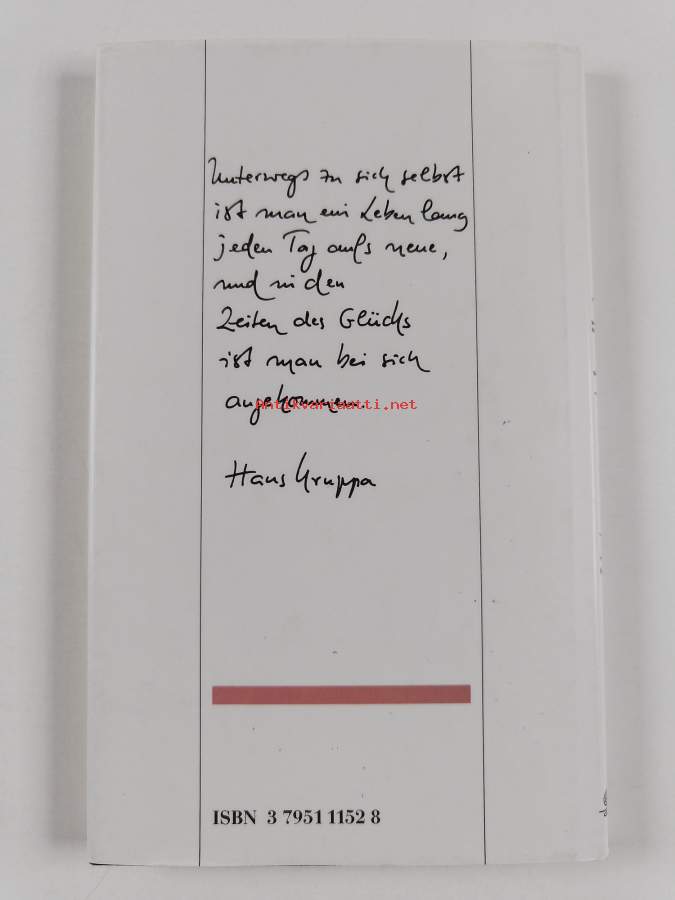 Unterwegs zu sich selbst
ist man ein Leben lang
jeden Tag aufs neue,
und in den
Zeiten des Glücks
ist man bei sich
angekommen.
Antikvariaatti.net
Hans Kruppa
ISBN 3 7951 1152 8